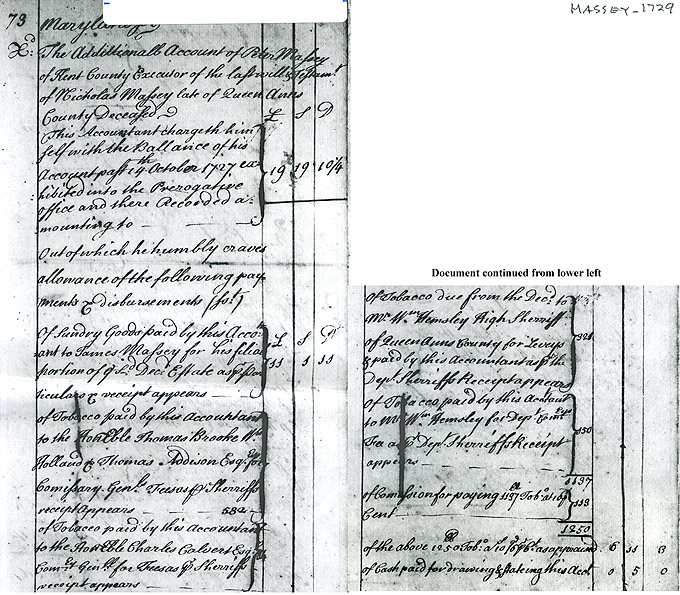 73
Maryland
MASSEY-1729
The Additionall Account of Peter Massey
of Kent County Executor of the last will & Testamt
of Nicholas Massey late of Queen Anns
County Deceased
£ S D
This Accountant chargeth him
self with the Ballance of his
Account past 14th October 1727 ex
hibited into the Prerogative
office and there Recorded a
mounting to — 19 19 10¼
Out of which he humbly craves
allowance of the following pay
ments & disbursements
£ S D
Of Sundry Goods paid by this Acco
ant to James Massey for his filial
portion of ye sd Decd Estate as pr par
ticulars & receipt appears — 11 1 11
of Tobacco paid by this Accountant
to the Honble Thomas Brooke Wm
Holland & Thomas Addison Esqrs for
Comissary Genls Fees as pr Sherriffs
receipt appears — 582
of Tobacco paid by this Accountant
to the Honble Charles Calvert Esq
Comry Genls for Fees as pr Sherriffs
receipt appears —
Document continued from lower left
of Tobacco due from the Decd to
Mr Wm Hemsley High Sherriff
of Queen Anns County for Levys
& paid by this Accountant as pr the
Depty Sherriffs Receipt appears
of Tobacco paid by this Accotant
to Mr Wm Hemsley for Depty
Fees as pr Depty Sherriffs Receipt
appears — 150
1137
of Comission for paying 1137 Tobo at 10 pr
Cent — 113
1250
of the above 1250 Tobo at 10s pr Ct as appraized 6 11 0
of Cash paid for drawing & stateing this Acct 0 5 0